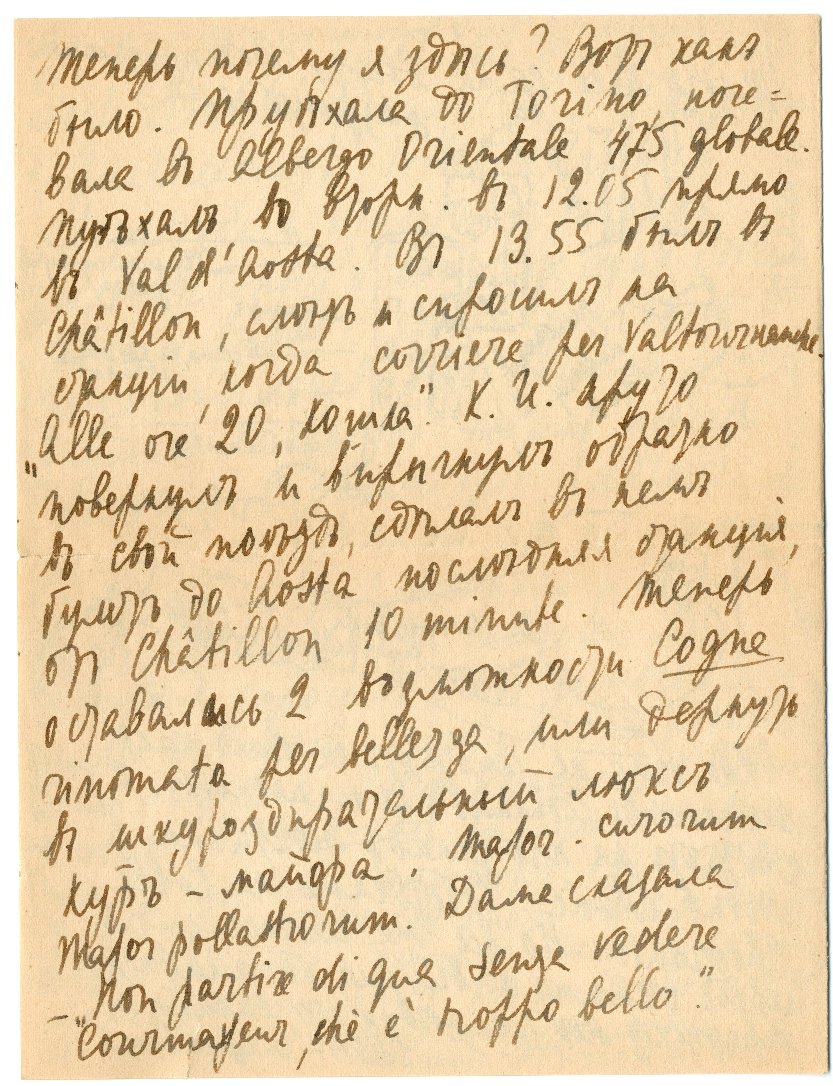 Теперь почему я здѣсь? Вотъ какъ
было. Прiѣхала до Torino, ноче=
вала въ Albergo Orientale 475 globale.
Прiѣхалъ во вторн. въ 12.05 прямо
въ Val d'Aosta. Въ 13.55 былъ въ
Châtillon, слѣзъ и спросилъ на
станцiи, когда corriere per Valtournanche.
"Alle ore 20, кошка". К. И. круто
повернулъ и впрыгнулъ обратно
въ свой поѣздъ, сдѣлалъ въ немъ
билетъ до Aosta послѣдняя станцiя,
отъ Châtillon 10 minute. Теперь
оставались 2 възможности Cogne
rinomata per bellezza, или дернуть
въ шкуроздирательный люксъ
Куръ – майора. Major. curorum
Major pollastrorum. Dama сказала
– "Non partire di qua senza vedere
Courmayeur, chè è troppo bello".